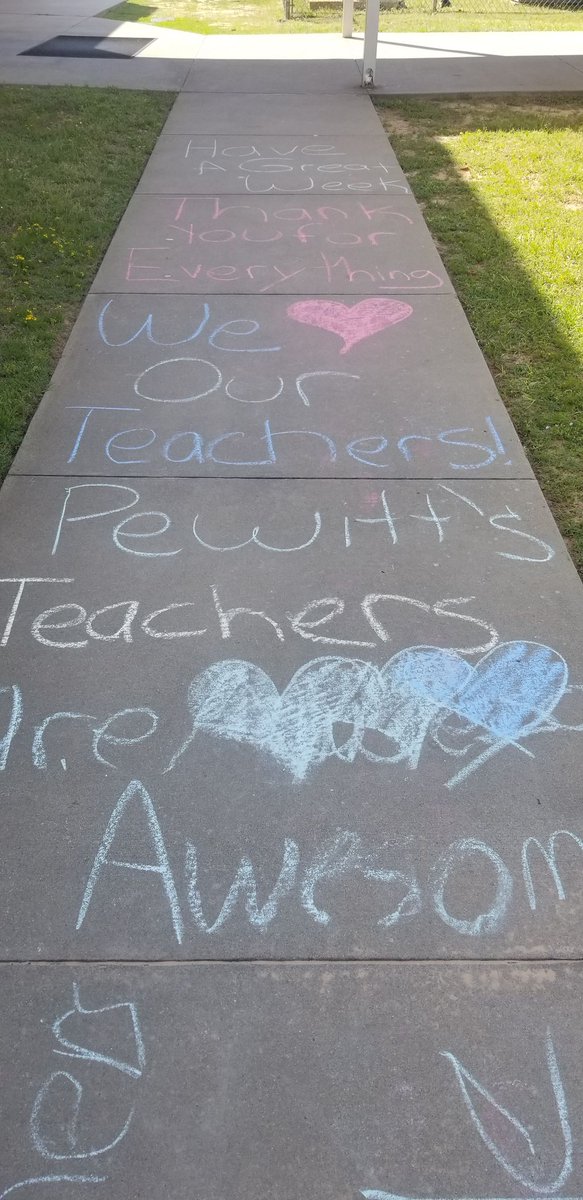 Have
A Great
Week
Thank
You for
Everything
We
Our
Teachers!
Pewitt's
Teachers
Are
Awesom